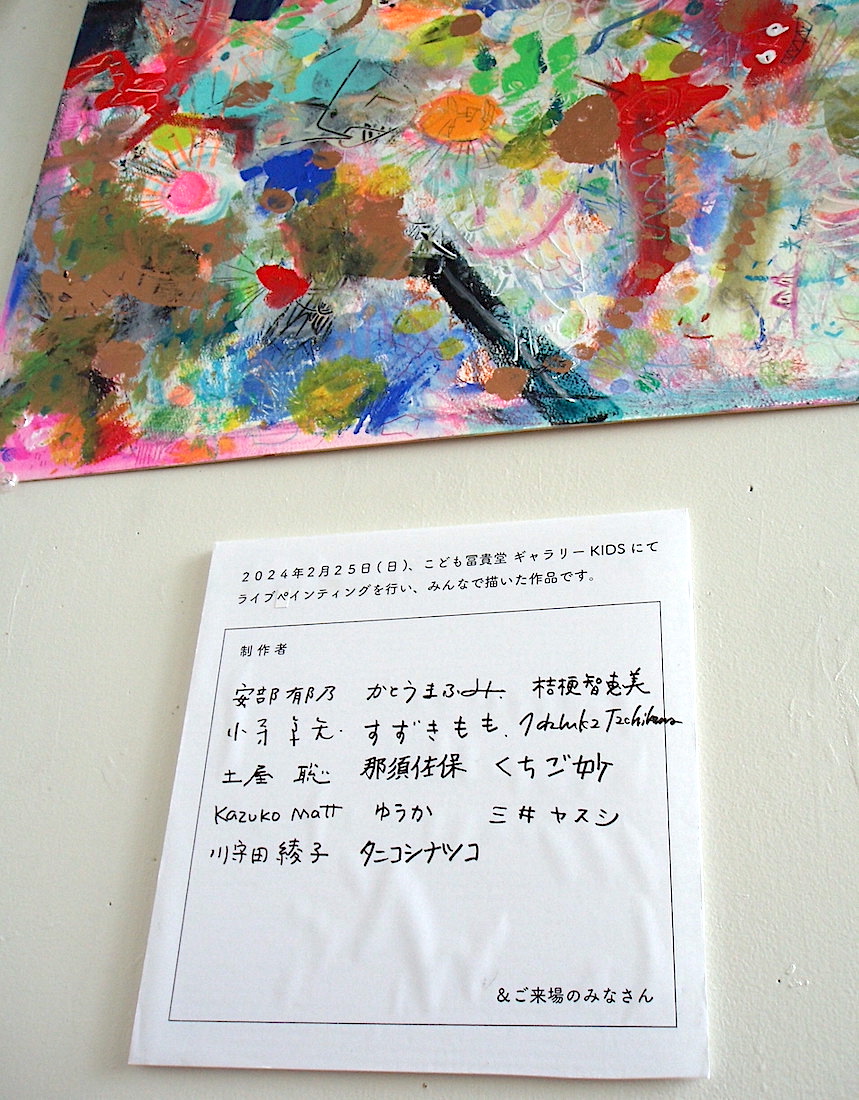 2024年2月25日(日)、こども冨貴堂 ギャラリーKIDSにて
ライブペインティングを行い、みんなで描いた作品です。
制作者
安部 郁乃 かとうまふみ 桔梗智恵美
すずきもも
土屋 聡 那須佐保 くちご妙
Kazuko Matt ゆうか 三井ヤスシ
川守田綾子 タニコシナツコ
&ご来場のみなさん